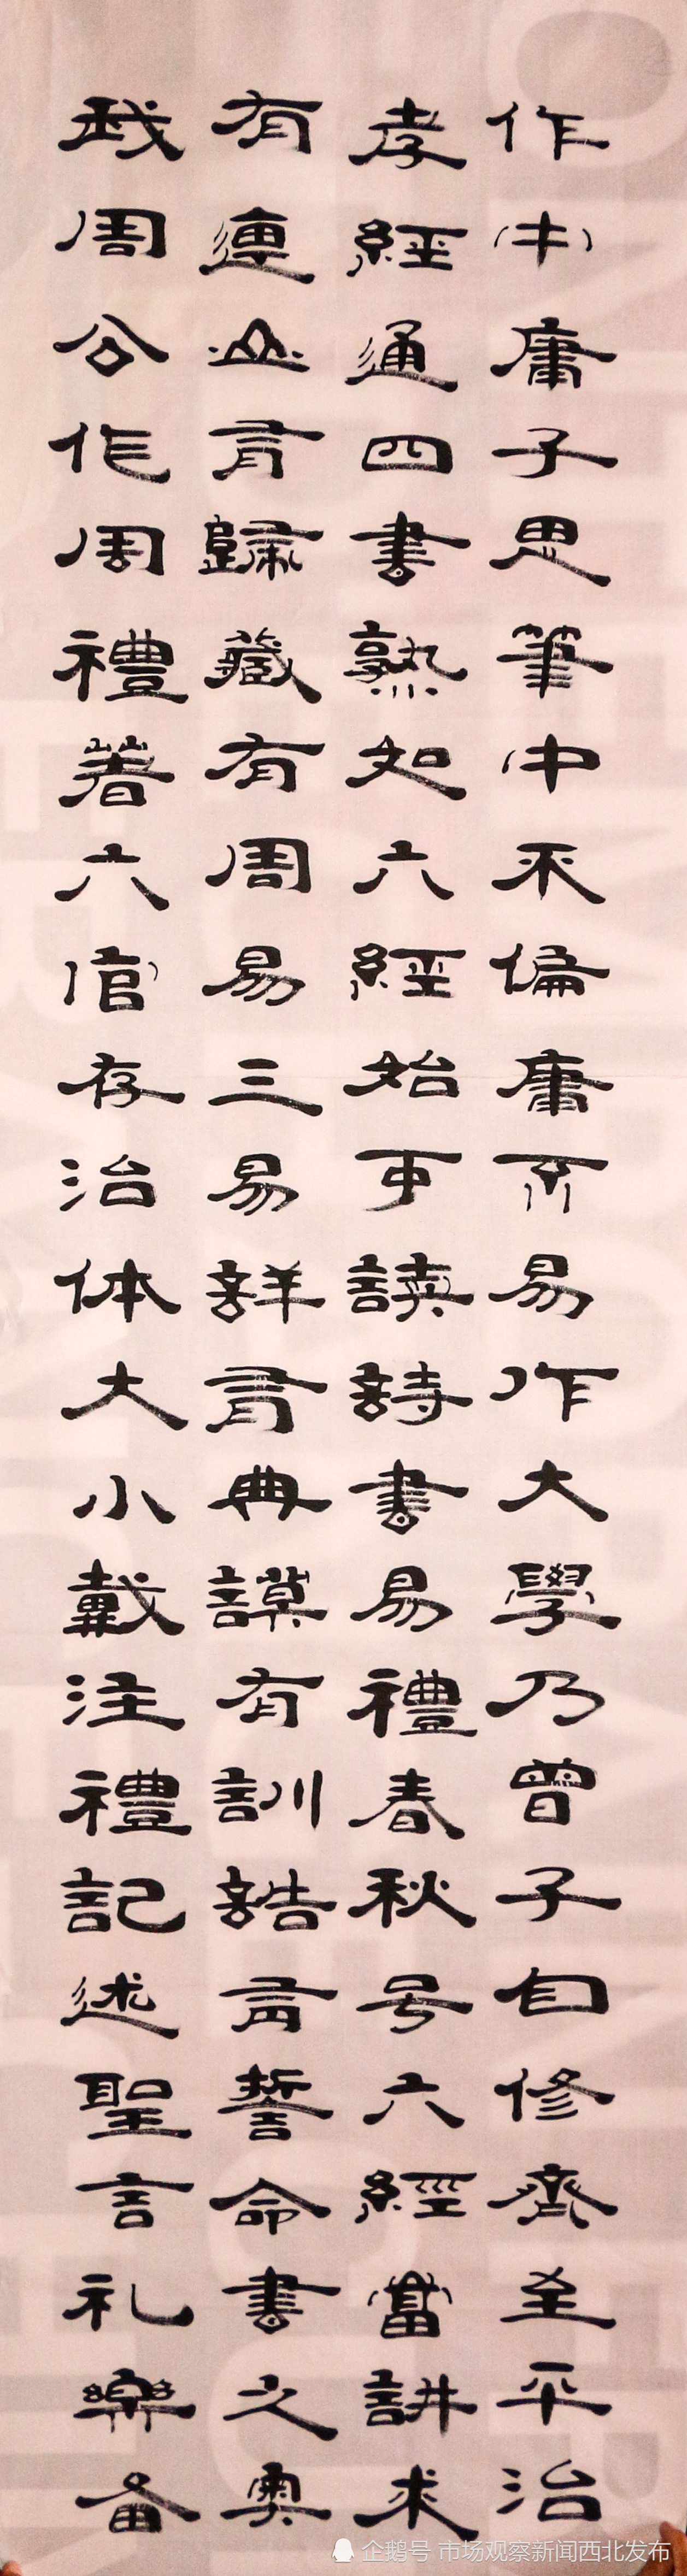 作中庸子思筆中不偏庸不易作大學乃曾子自修齊至平治
孝經通四書熟如六經始可讀詩書易禮春秋号六經當講求
有連山有歸藏有周易三易詳有典謨有訓誥有誓命書之奥
我周公作周禮著六官存治体大小戴注禮記述聖言礼樂备
企鹅号 市场观察新闻西北发布